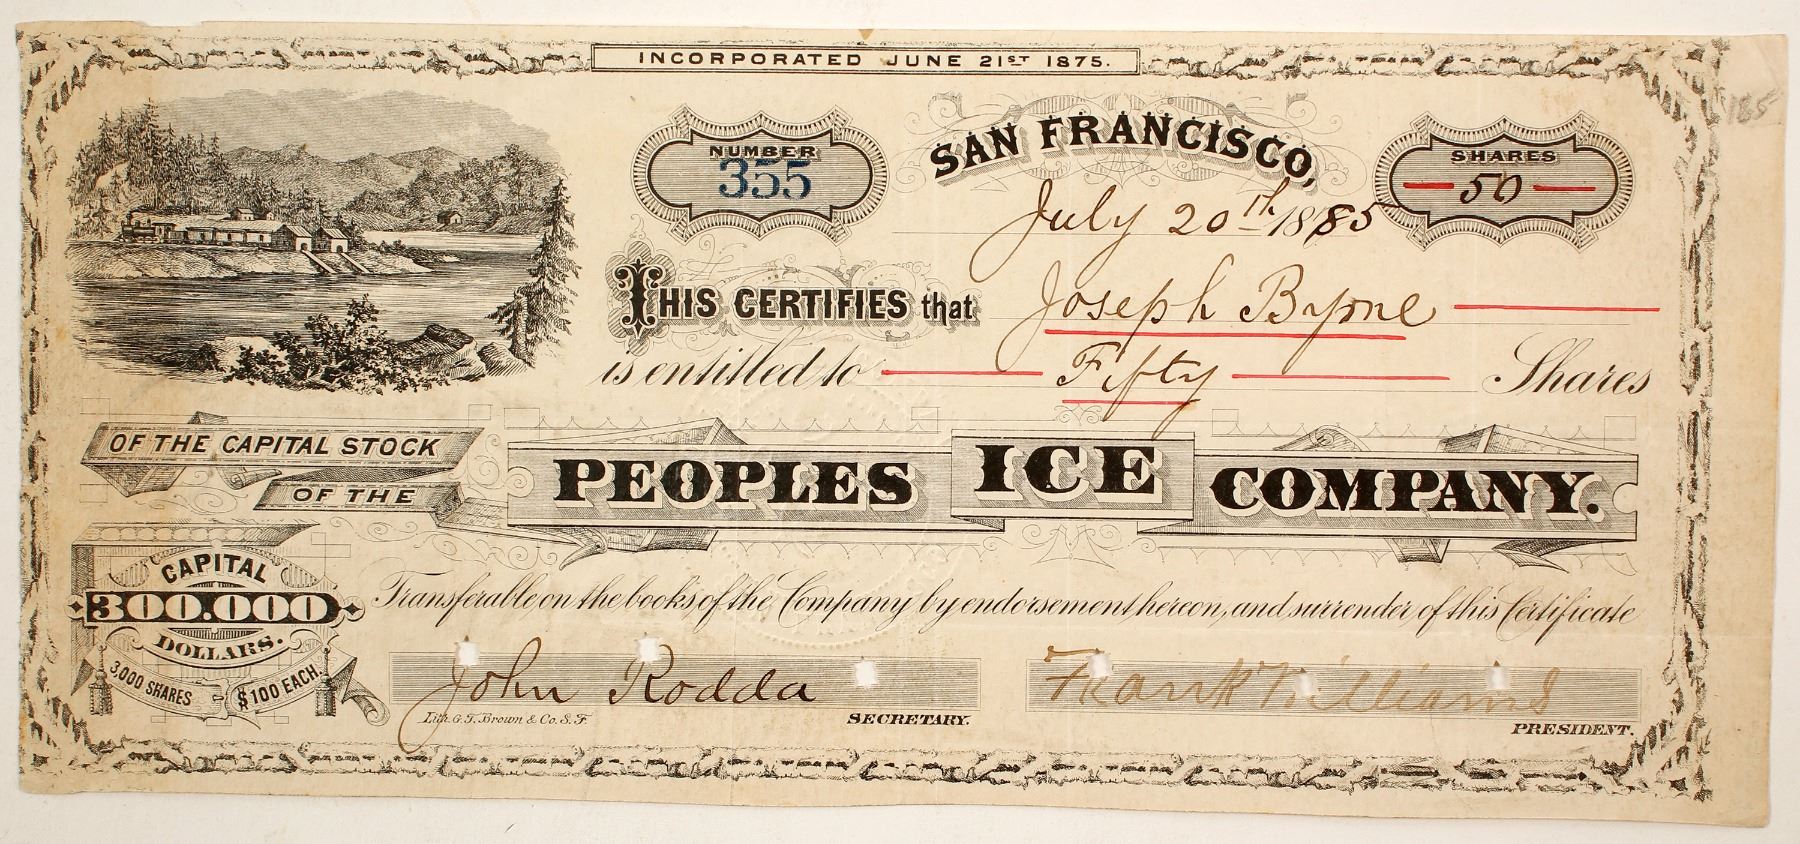 INCORPORATED JUNE 21ST 1875.
185
NUMBER
355
SAN FRANCISCO,
July 20th 1885
SHARES
50
THIS CERTIFIES that Joseph Byrne
is entitled to Fifty Shares
OF THE CAPITAL STOCK
OF THE
PEOPLES ICE COMPANY.
CAPITAL
300.000
DOLLARS.
3,000 SHARES $100 EACH.
Transferable on the books of the Company by endorsement hereon, and surrender of this Certificate
John Rodda
Frank Williams
Lith. G. T. Brown & Co. S. F.
SECRETARY.
PRESIDENT.